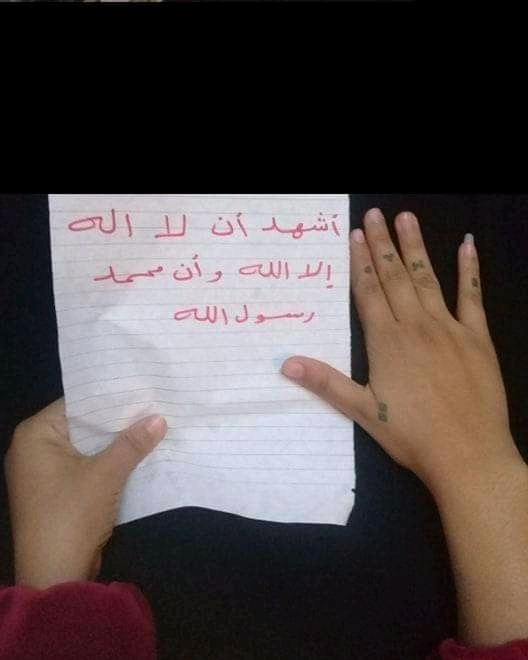 أشهد أن لا اله
إلا الله وأن محمد
رسول الله